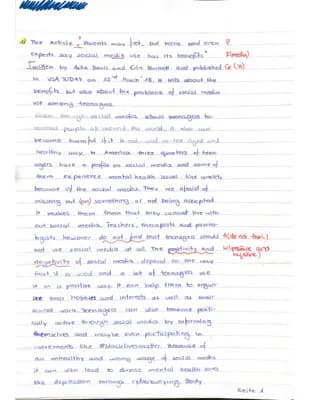 The article „Parents may fret, but teens and even
experts say social media use has its benefits"
written by Asha Davis and Erin Burnett and published
in USA TODAY on 22nd March '18. It tells about the
benefits but also about the problems of social media
use among teenagers.
social media allows teenagers to
people all around the world, it also can
become harmful if it is not used in the right and
healthy way. In America three quarters of teen-
agers have a profile on social media and some of
them experience mental health issues like anxiety
because of the social media. They are afraid of
missing out (on) something or not being accepted.
It makes them think that they cannot live with-
out social media. Teachers, therapists and psycho-
logists however do not find that teenagers should
not use social media at all. The positivity and
negativity of social media depend on the way
that it is used and a lot of teenagers use
it in a positive way. It can help them to
their hobbies and interests as well as their
school work. Teenagers can also become politi-
cally active through social media by informing
themselves and maybe even participating in
movements like #blacklivesmatter. Because of
an unhealthy and wrong usage of social media
it can also lead to diverse mental health
like depression through cyberbullying. Body
Seite 1